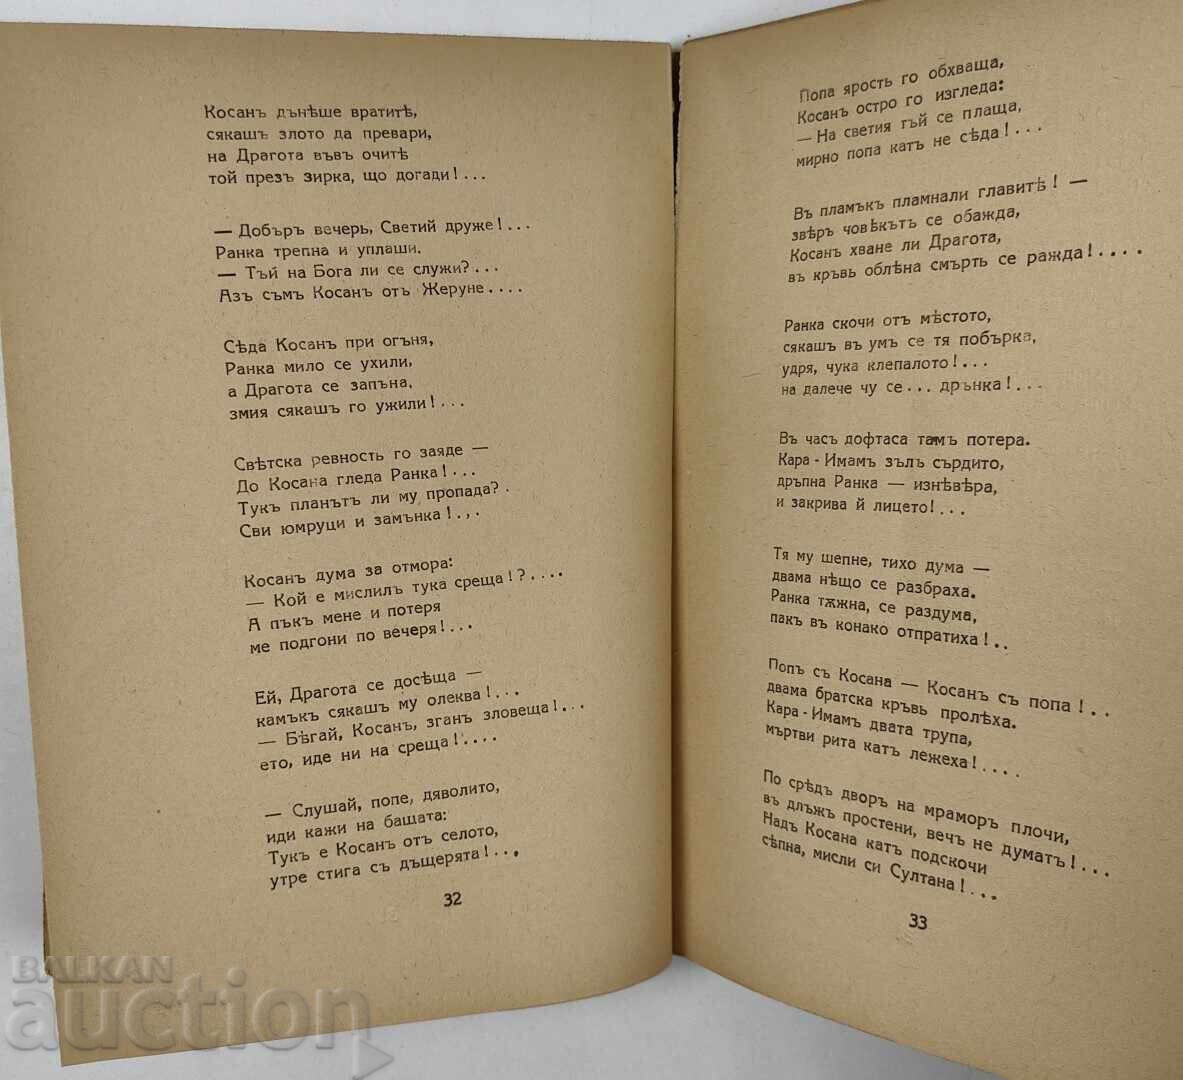 Косанъ дънѣше вратитѣ,
сякашъ злото да превари,
на Драгота въвъ очитѣ
той презъ зирка, що догади!...
— Добъръ вечерь, Светий друже!...
Ранка трепна и уплаши.
— Тъй на Бога ли се служи?...
Азъ съмъ Косанъ отъ Жеруне....
Сѣда Косанъ при огъня,
Ранка мило се ухили,
а Драгота се запъна,
змия сякашъ го ужили!...
Свѣтска ревность го заяде —
До Косана гледа Ранка!...
Тукъ планътъ ли му пропада?.
Сви юмруци и замънка!...
Косанъ дума за отмора:
— Кой е мислилъ тука среща!?....
А пъкъ мене и потеря
ме подгони по вечеря!...
Ей, Драгота се досѣща —
камъкъ сякашъ му олеква!...
— Бѣгай, Косанъ, зганъ зловеща!...
ето, иде ни на среща!....
— Слушай, попе, дяволито,
иди кажи на бащата:
Тукъ е Косанъ отъ селото,
утре стига съ дъщерята!...
32
Попа ярость го обхваща,
Косанъ остро го изгледа:
— На светия тъй се плаща,
мирно попа катъ не сѣда!...
Въ пламъкъ пламнали главитѣ! —
звѣръ човѣкътъ се обажда,
Косанъ хване ли Драгота,
въ кръвь облѣна смърть се ражда!....
Ранка скочи отъ мѣстото,
сякашъ въ умъ се тя побърка,
удря, чука клепалото!...
на далече чу се... дрънка!...
Въ часъ дофтаса тамъ потера.
Кара - Имамъ зълъ сърдито,
дръпна Ранка — изнѣвѣра,
и закрива й лицето!...
Тя му шепне, тихо дума —
двама нѣщо се разбраха.
Ранка тѫжна, се раздума,
пакъ въ конако отпратиха!..
Попъ съ Косана — Косанъ съ попа!..
двама братска кръвь пролѣха.
Кара - Имамъ двата трупа,
мъртви рита катъ лежеха!....
По срѣдъ дворъ на мраморъ плочи,
въ длъжъ простени, вечъ не думатъ!...
Надъ Косана катъ подскочи
сѣпна, мисли си Султана!...
33
BALKAN
auction